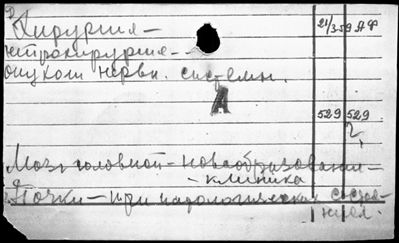 Хирургия —
нейрохирургия —
опухоли нервн. системы.
21/3.59 АФ
А
529 529
2,
Мозг головной — новообразования —
— клиника
Почки — при патологических состоя-
ниях.